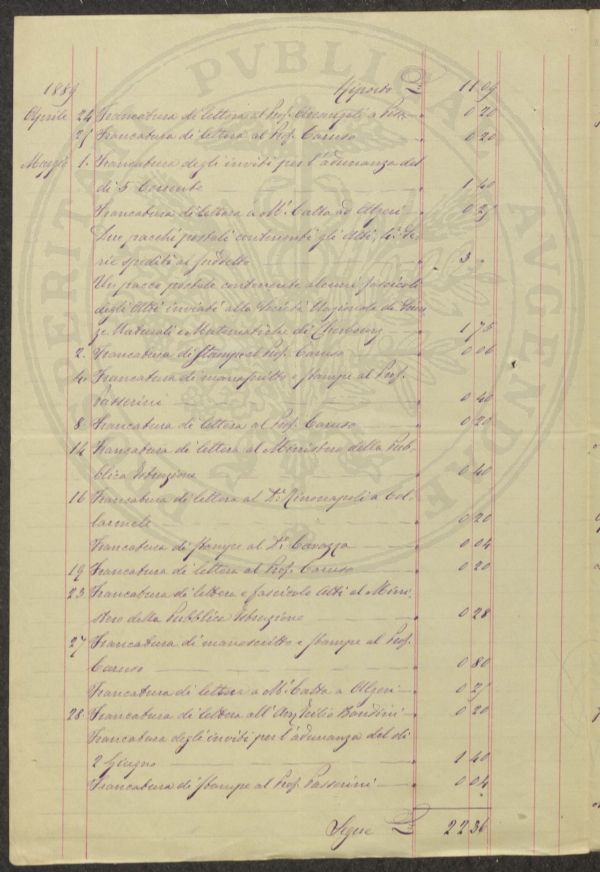 PVBLICAE AVGENDAE PROSPERITATI
1889 Riporto £ 11 09
Aprile 24 Francatura di lettera al Prof. Arcangeli a Pisa 0 20
25 Francatura di lettera al Prof. Caruso 0 20
Maggio 1. Francatura degli inviti per l'adunanza del
di 5 Corrente 1 40
Francatura di lettera a Mr. Catta ad Algeri 0 25
Due pacchi postali contenenti gli Atti,
rie spediti a 3 "
Un pacco postale contenente alcuni fascicoli
degli Atti inviati alla Società Nazionale di Scien
ze Naturali e Matematiche di Cherbourg 1 75
2. Francatura di Stampe al Prof. Caruso 0 06
4. Francatura di manoscritto e stampe al Prof.
Passerini 0 40
8. Francatura di lettera al Prof. Caruso 0 20
14 Francatura di lettera al Ministero della Pub
blica Istruzione 0 40
16 Francatura di lettera al Dr. a Col
larmele 0 20
Francatura di stampe al Dr. Cavazza 0 04
19 Francatura di lettera al Prof. Caruso 0 20
23 Francatura di lettera e fascicolo Atti al Mini
stero della Pubblica Istruzione 0 28
27 Francatura di manoscritto e stampe al Prof.
Caruso 0 80
Francatura di lettera a Mr. Catta a Algeri 0 25
28 Francatura di lettera all' Bandini 0 20
Francatura degli inviti per l'adunanza del di
2 Giugno 1 40
Francatura di stampe al Prof. Passerini 0 04
Segue £ 22 36